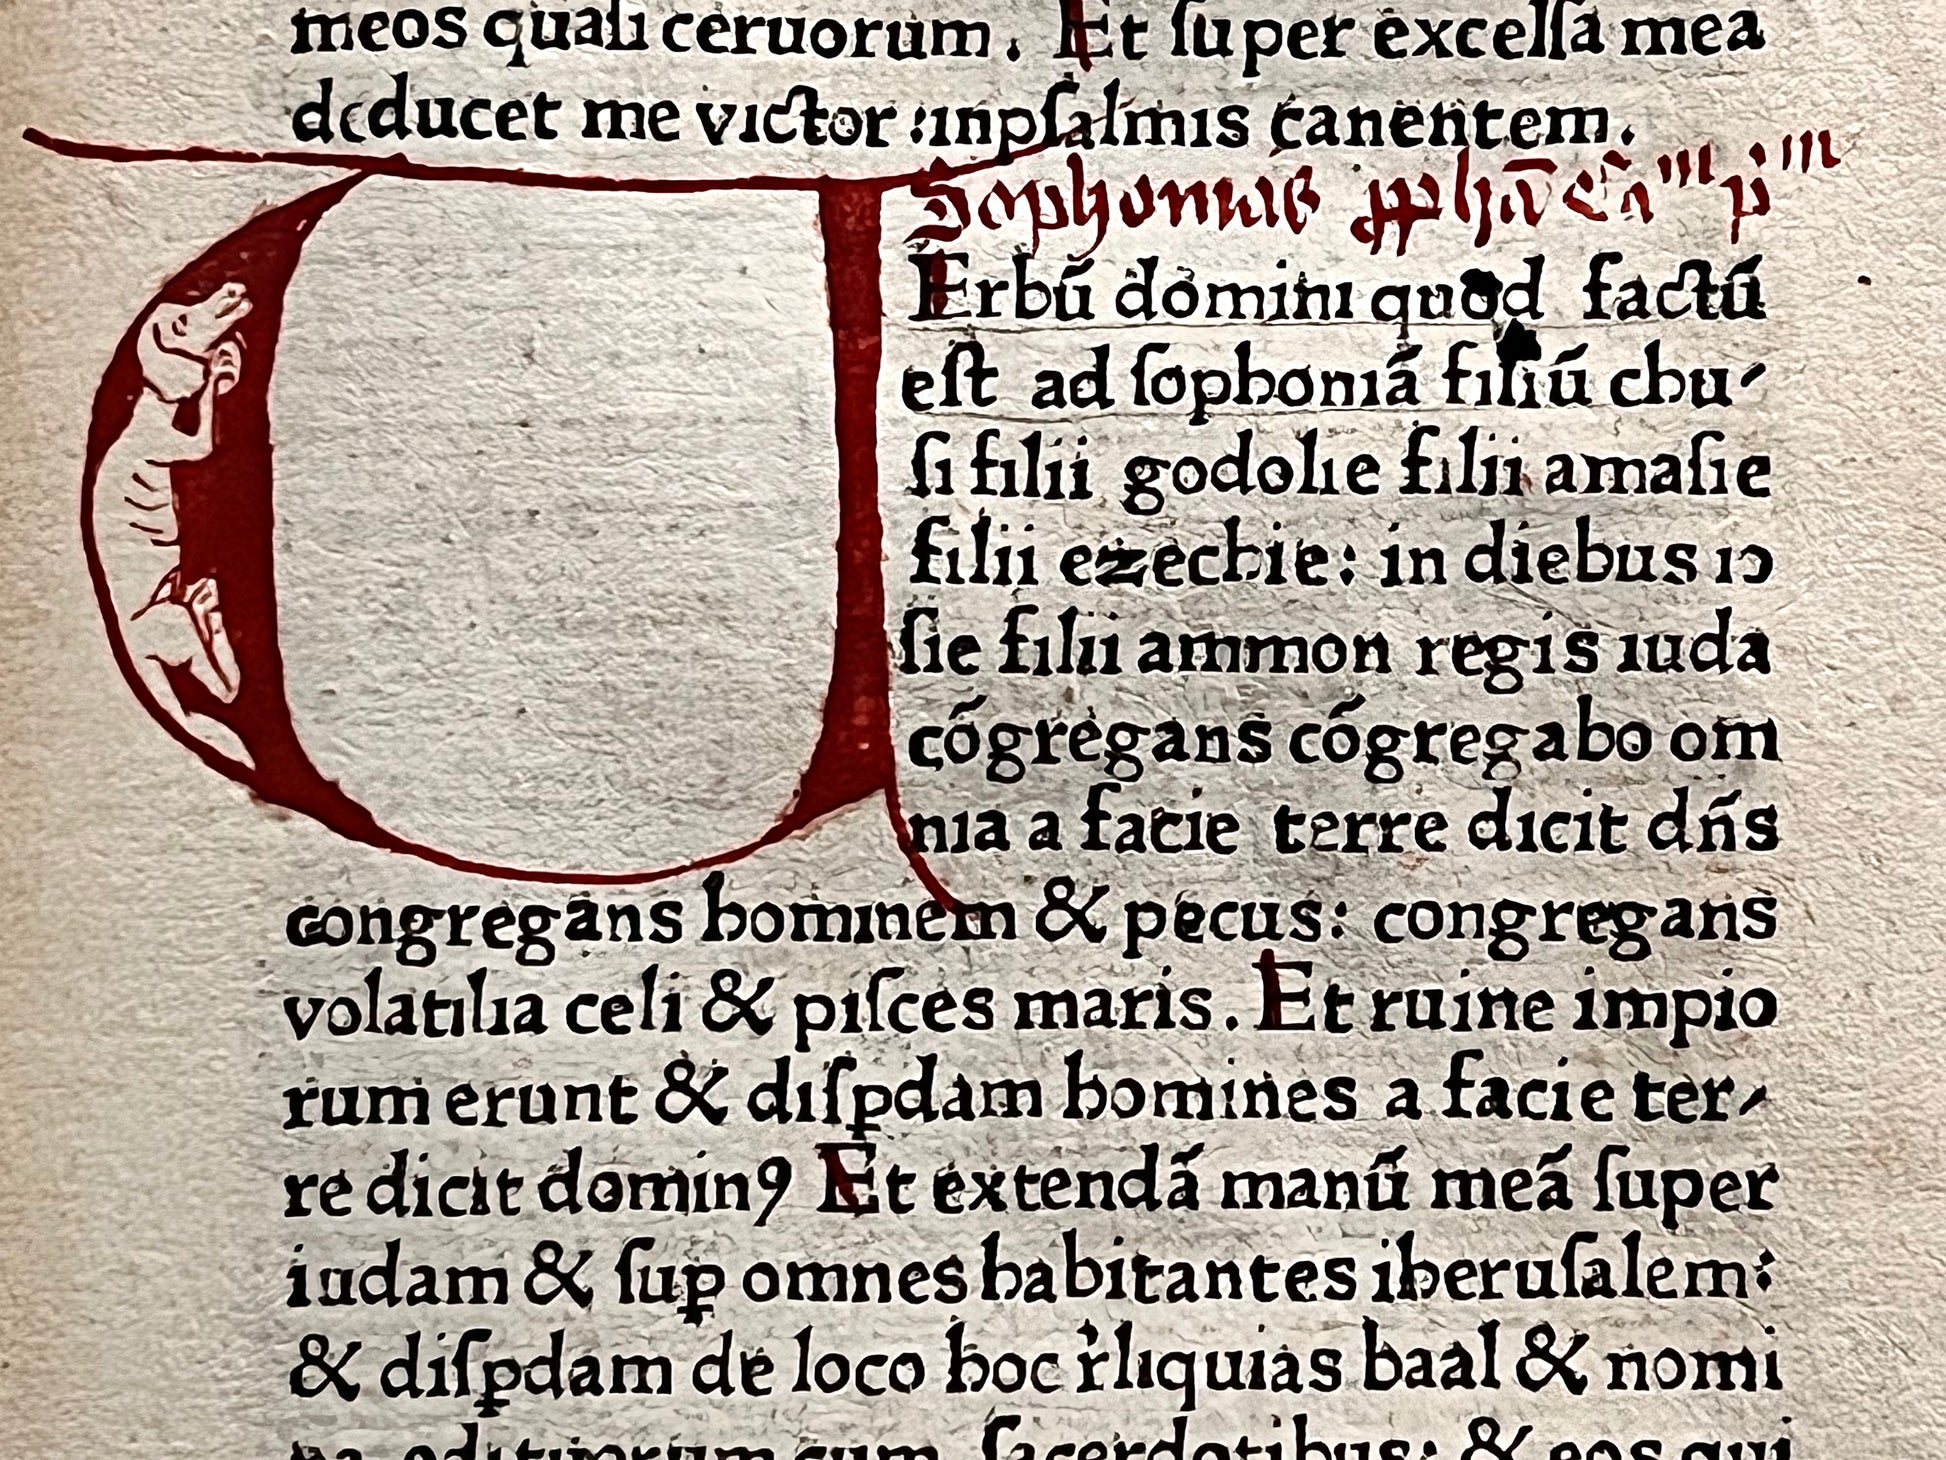 meos quasi ceruorum. Et ſuper excelſa mea
deducet me victor :inpſalmis canentem.
Sophonias
Erbū domini quod factū
eſt ad ſophoniā filiū chu-
ſi filii godolie filii amaſie
filii ezechie: in diebus io
ſie filii ammon regis iuda
cōgregans cōgregabo om
nia a facie terre dicit dn̄s
congregans hominem & pecus: congregans
volatilia celi & piſces maris. Et ruine impio
rum erunt & diſꝑdam homines a facie ter-
re dicit dominꝰ Et extendā manū meā ſuper
iudam & ſuꝑ omnes habitantes iheruſalem:
& diſꝑdam de loco hoc r̓liquias baal & nomi
na edituorum cum ſacerdotibus: & eos qui